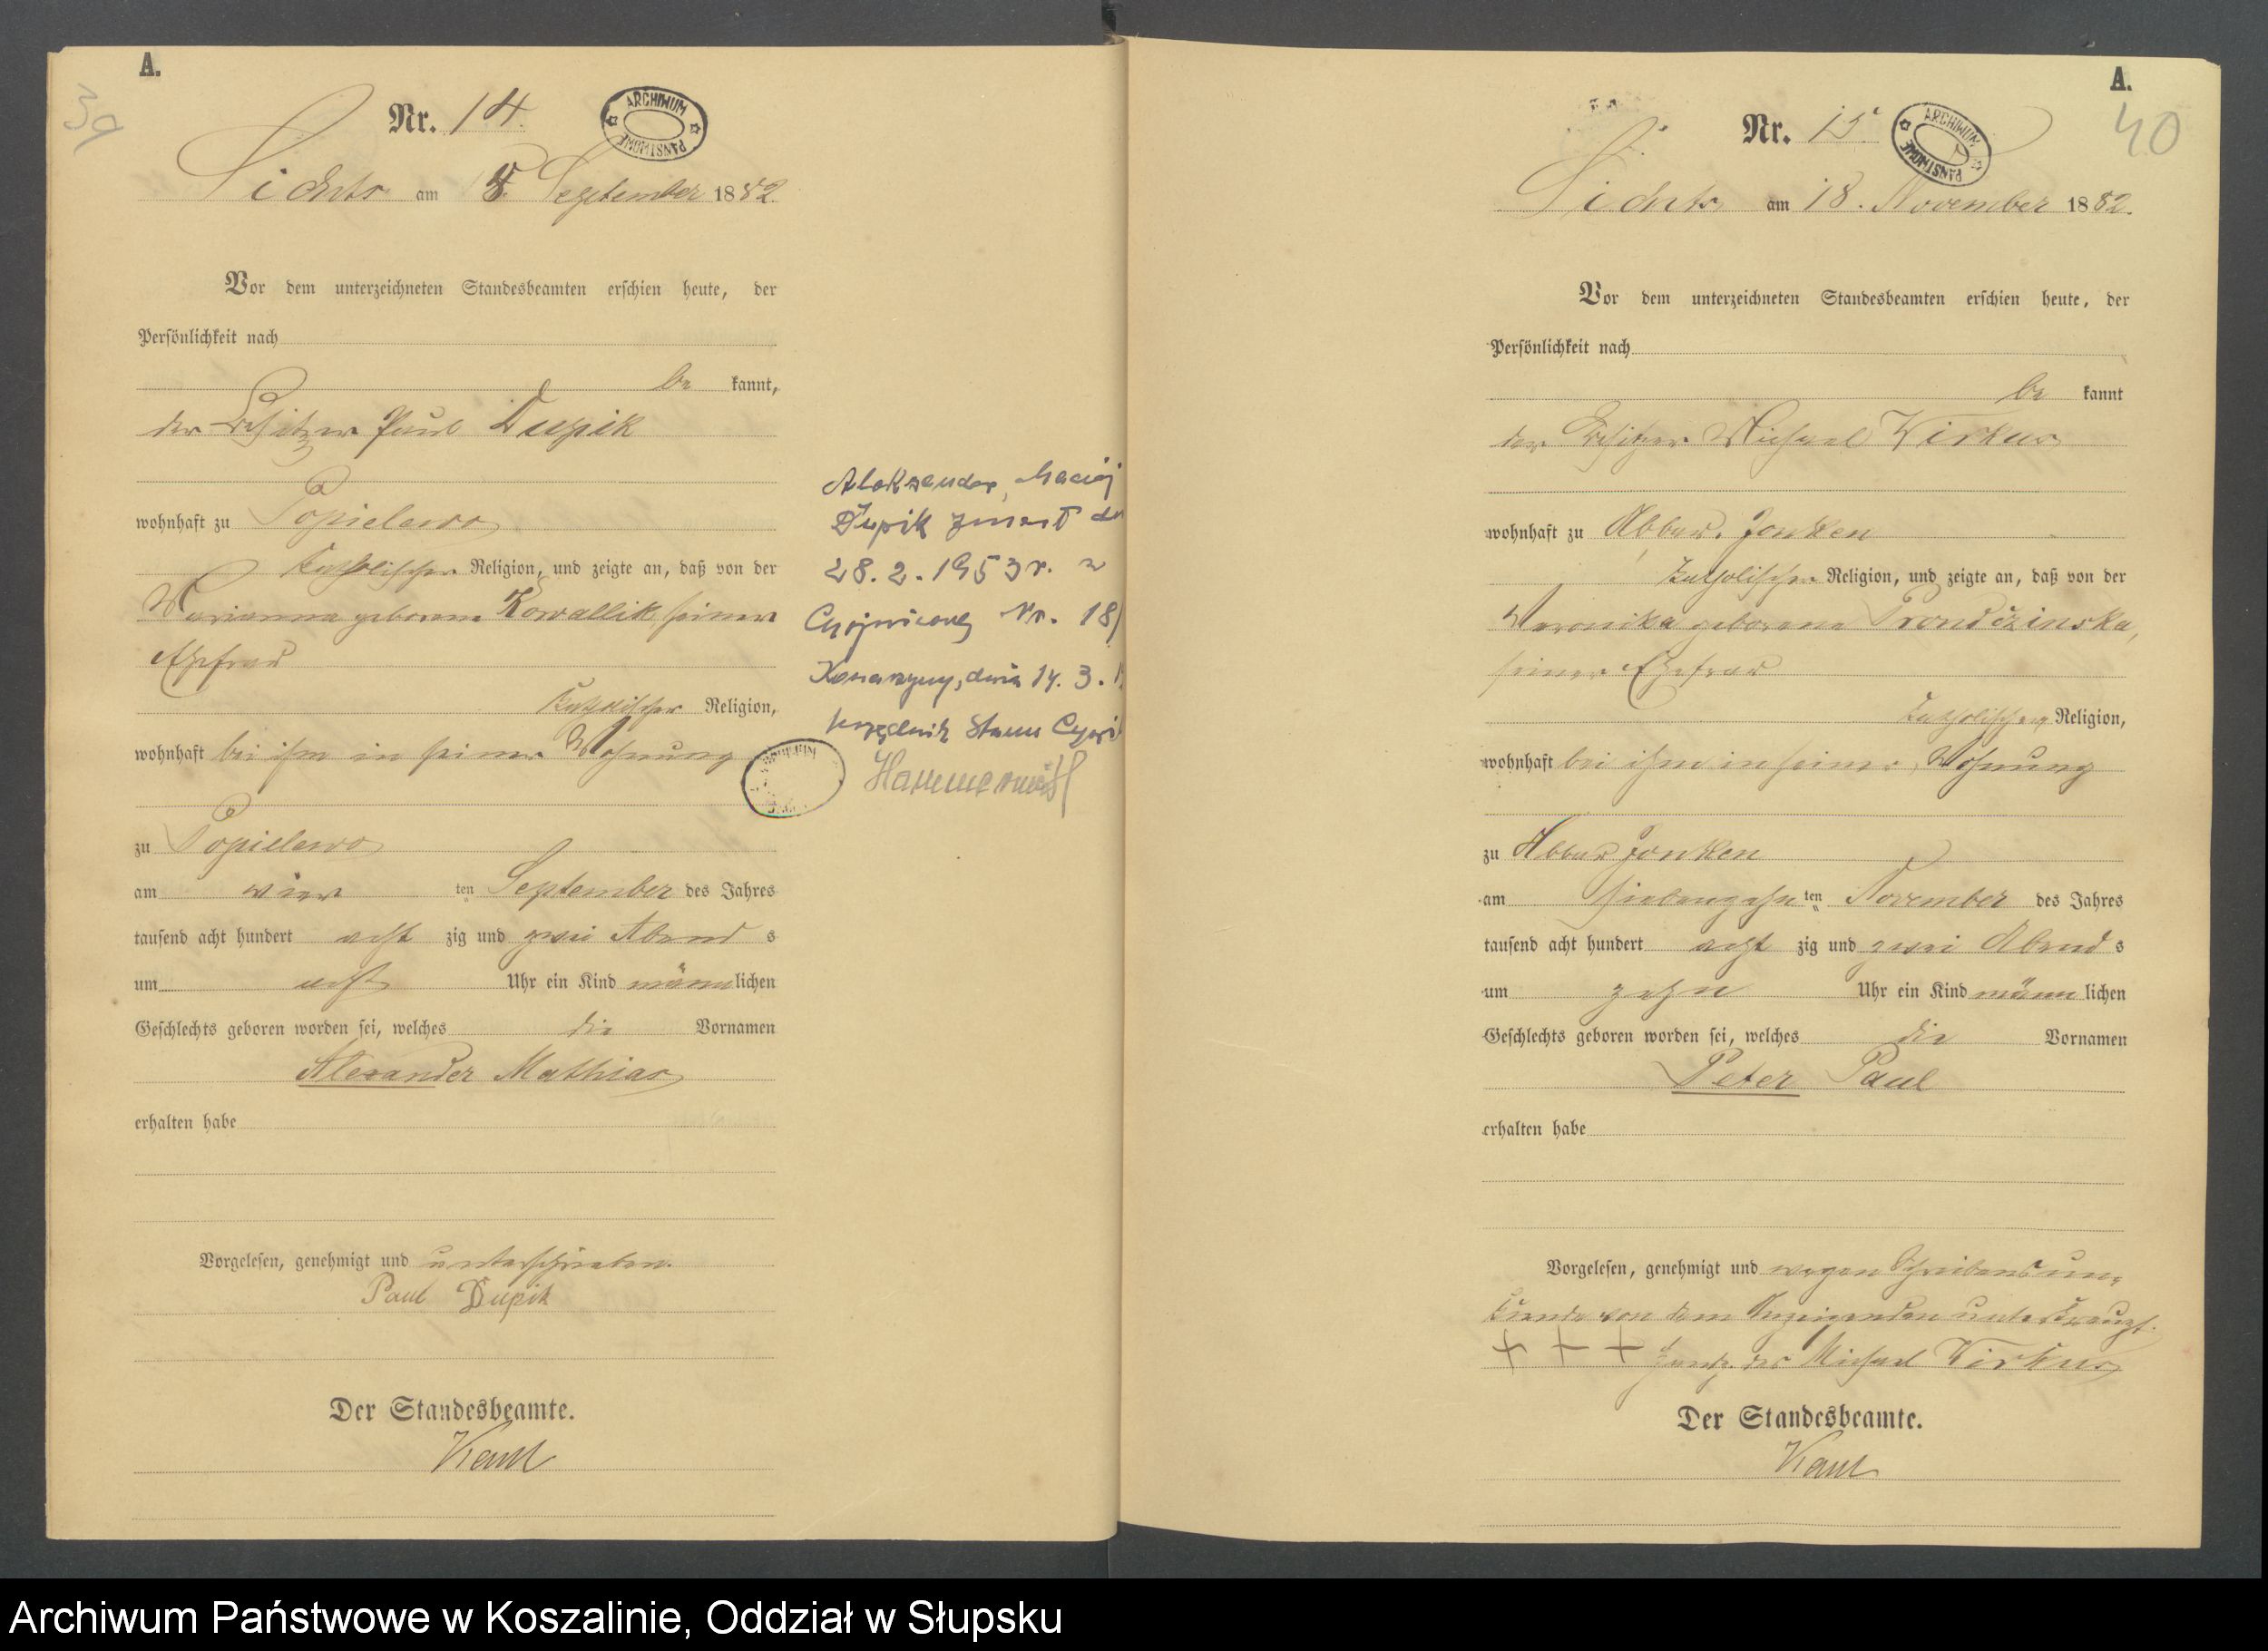 A.
39
Nr. 14.
ARCHIWUM PAŃSTWOWE
am 8. September 1882.
Vor dem unterzeichneten Standesbeamten erschien heute, der
Persönlichkeit nach
be kannt,
der Besitzer Paul Dupik
wohnhaft zu Popielewo
katholischer Religion, und zeigte an, daß von der
Marianna geborene Kowallik seiner
Ehefrau
katholischer Religion,
wohnhaft bei ihm in seiner Wohnung
zu Popielewo
am vier ten September des Jahres
tausend acht hundert acht zig und zwei Abend s
um acht Uhr ein Kind männlichen
Geschlechts geboren worden sei, welches die Vornamen
Alexander Mathias
erhalten habe
Vorgelesen, genehmigt und unterschrieben.
Paul Dupik
Der Standesbeamte.
Aleksander, Maciej
Dupik zmarł
28.2.1953r. w
Nr. 18/
Konarzyny, dnia 14.3.
Stanu
A.
40
Nr. 15.
ARCHIWUM PAŃSTWOWE
am 18. November 1882.
Vor dem unterzeichneten Standesbeamten erschien heute, der
Persönlichkeit nach
be kannt
der Besitzer Michael Wirkus
wohnhaft zu Abbau Jonken
katholischer Religion, und zeigte an, daß von der
Veronika geborene Prondczinska,
seiner Ehefrau
katholischer Religion,
wohnhaft bei ihm in seiner Wohnung
zu Abbau Jonken
am siebenzehn ten November des Jahres
tausend acht hundert acht zig und zwei Abend s
um zehn Uhr ein Kind männlichen
Geschlechts geboren worden sei, welches die Vornamen
Peter Paul
erhalten habe
Vorgelesen, genehmigt und wegen Schreibensun-
kunde von dem Anzeigenden unterkreuzt.
+ + + Handz. des Michael Wirkus
Der Standesbeamte.
Archiwum Państwowe w Koszalinie, Oddział w Słupsku